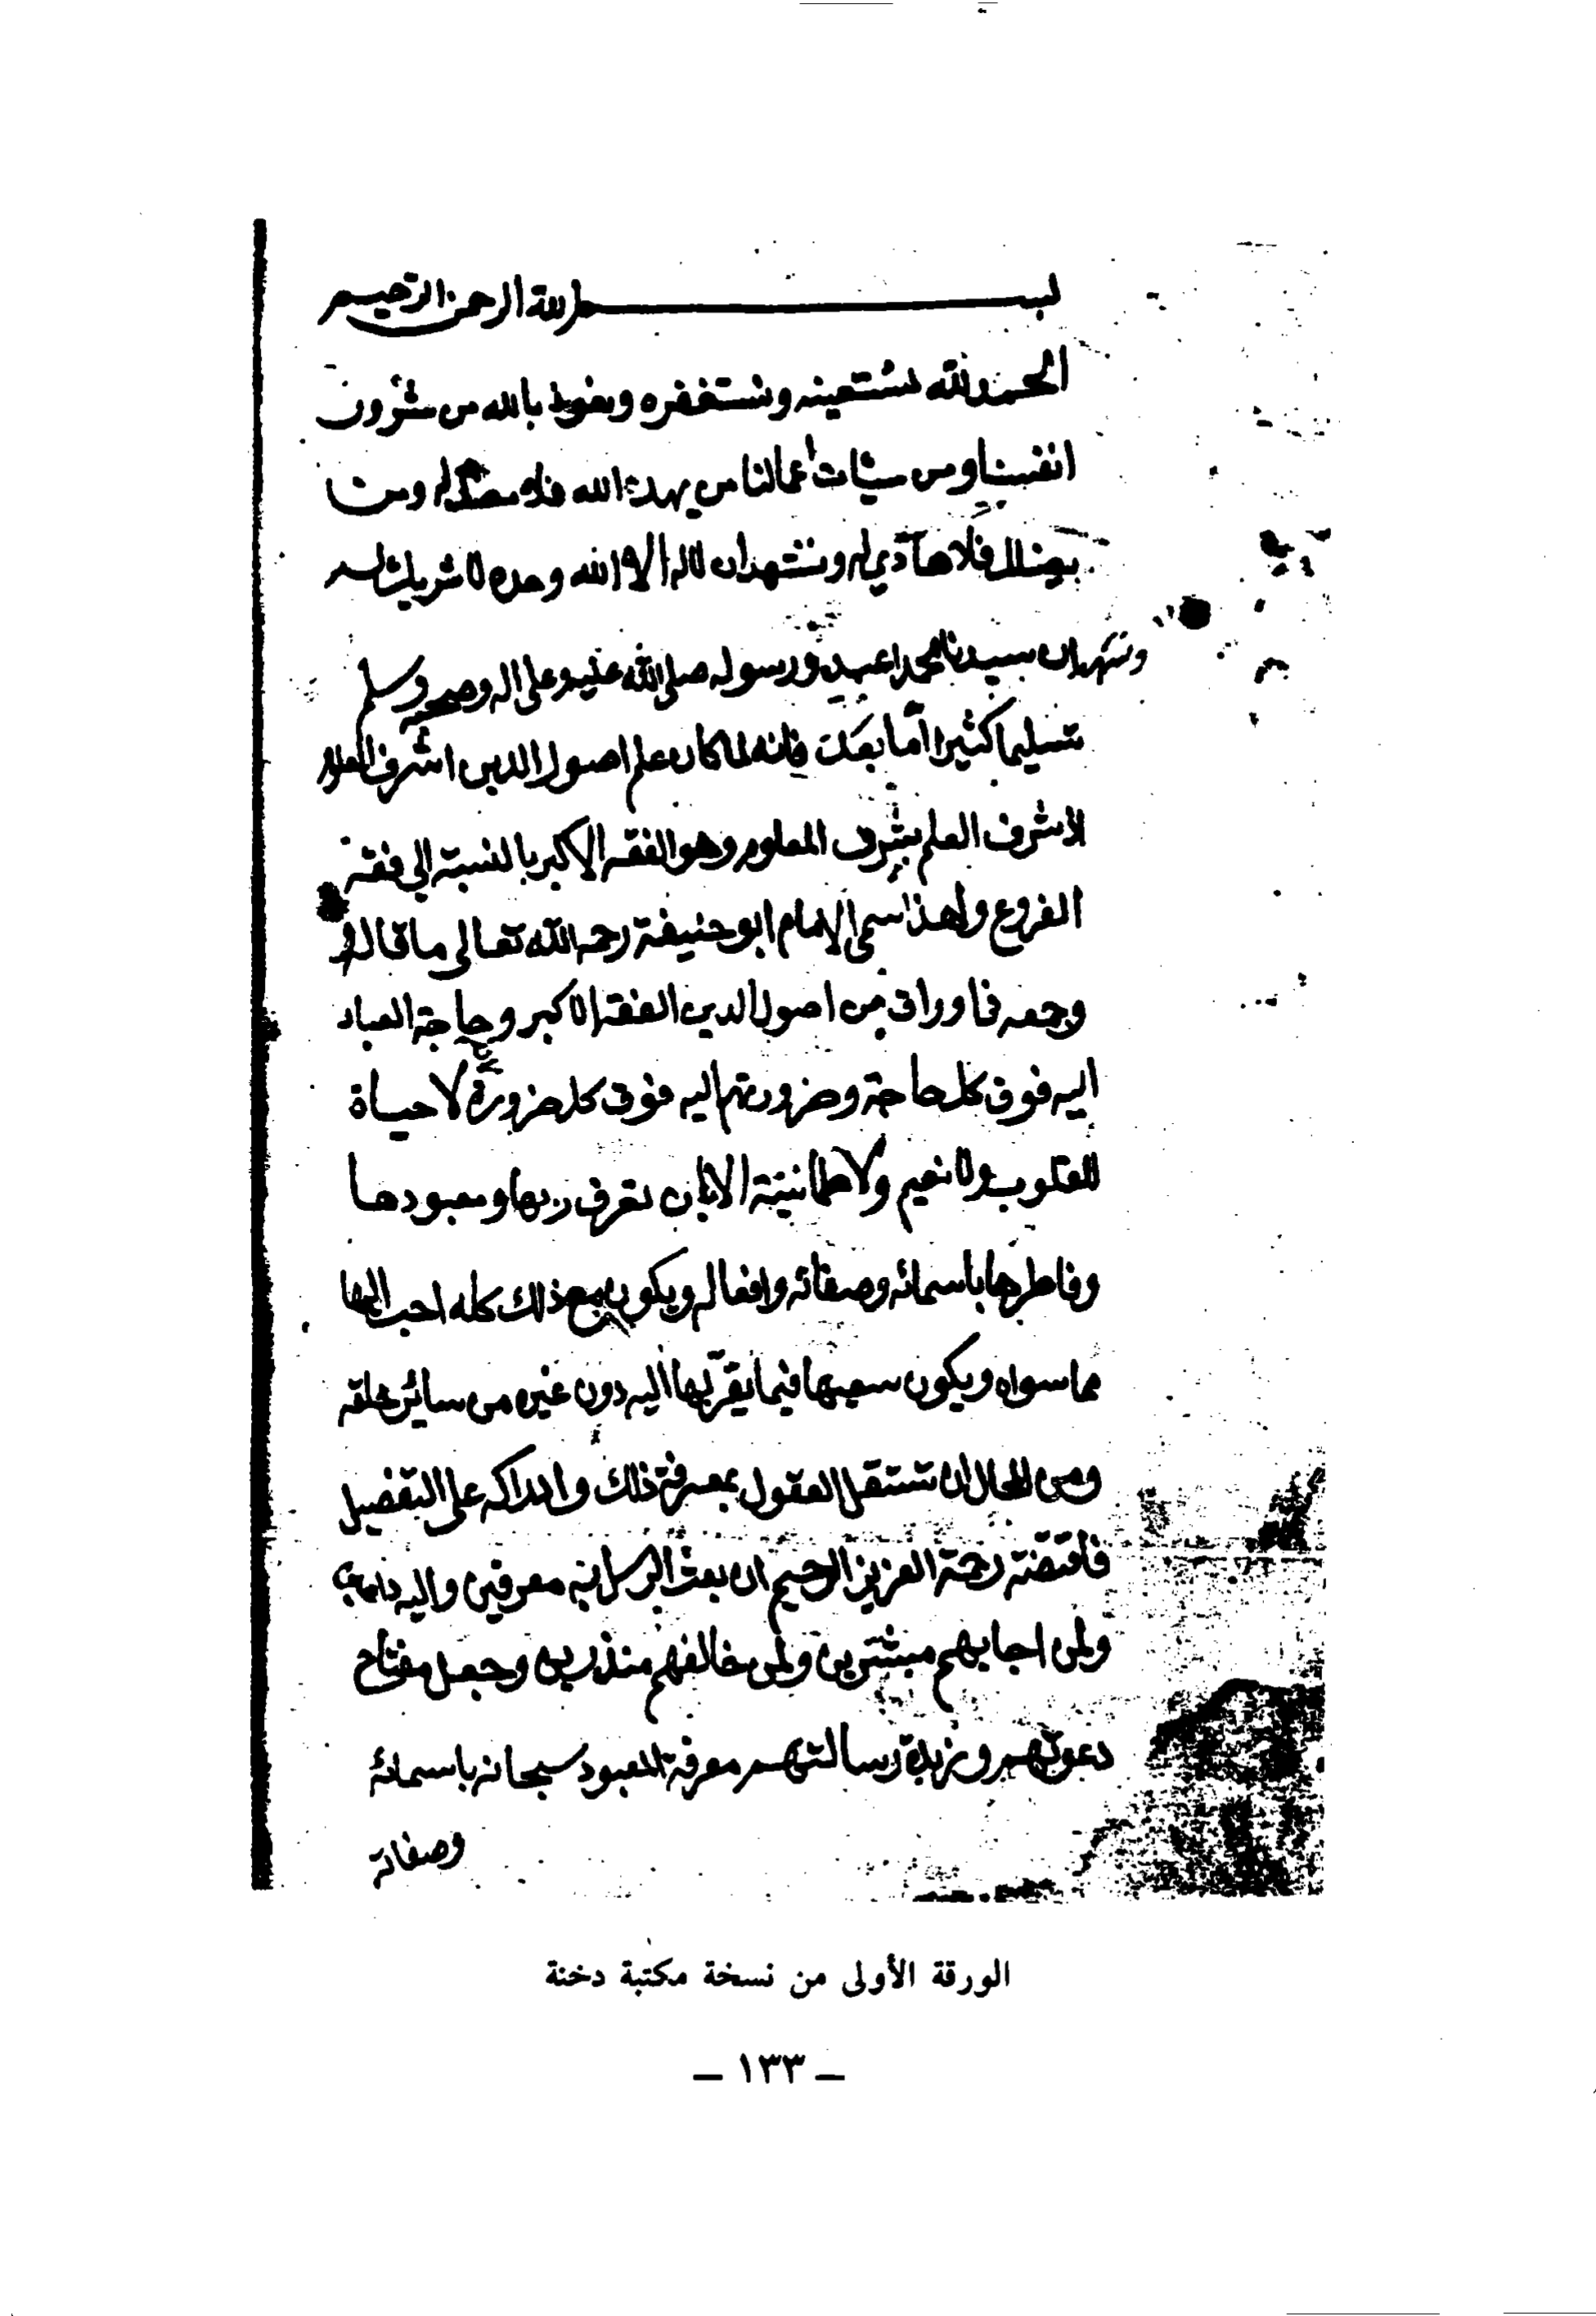 بسم الله الرحمن الرحيم
الحمد لله نستعينه ونستغفره ونعوذ بالله من شرور
انفسنا ومن سيئات اعمالنا من يهده الله فلا مضل له ومن
يضلل فلا هادي له ونشهد ان لا اله الا الله وحده لا شريك له
ونشهد ان سيدنا محمدا عبده ورسوله صلى الله عليه وعلى اله وصحبه وسلم
تسليما كثيرا اما بعد فانه لما كان علم اصول الدين اشرف العلوم
اذ شرف العلم بشرف المعلوم وهو الفقه الاكبر بالنسبة الى فقه
الفروع ولهذا سمى الامام ابو حنيفة رحمه الله تعالى ما قاله
وجمعه في اوراق من اصول الدين الفقه الاكبر وحاجة العباد
اليه فوق كل حاجة وضرورتهم اليه فوق كل ضرورة لا حياة
للقلوب ولا نعيم ولا طمانينة الا بان تعرف ربها ومعبودها
وفاطرها باسمائه وصفاته وافعاله ويكون مع ذلك كله احب اليها
مما سواه ويكون سعيها فيما يقربها اليه دون غيره من سائر خلقه
ومن المحال ان تستقل العقول بمعرفة ذلك وادراكه على التفصيل
فاقتضت رحمة العزيز الرحيم ان بعث الرسل به معرفين واليه داعين
ولمن اجابهم مبشرين ولمن خالفهم منذرين وجعل مفتاح
دعوتهم وزبدة رسالتهم معرفة المعبود سبحانه باسمائه
وصفاته
الورقة الأولى من نسخة مكتبة دخنة
– ١٣٣ –